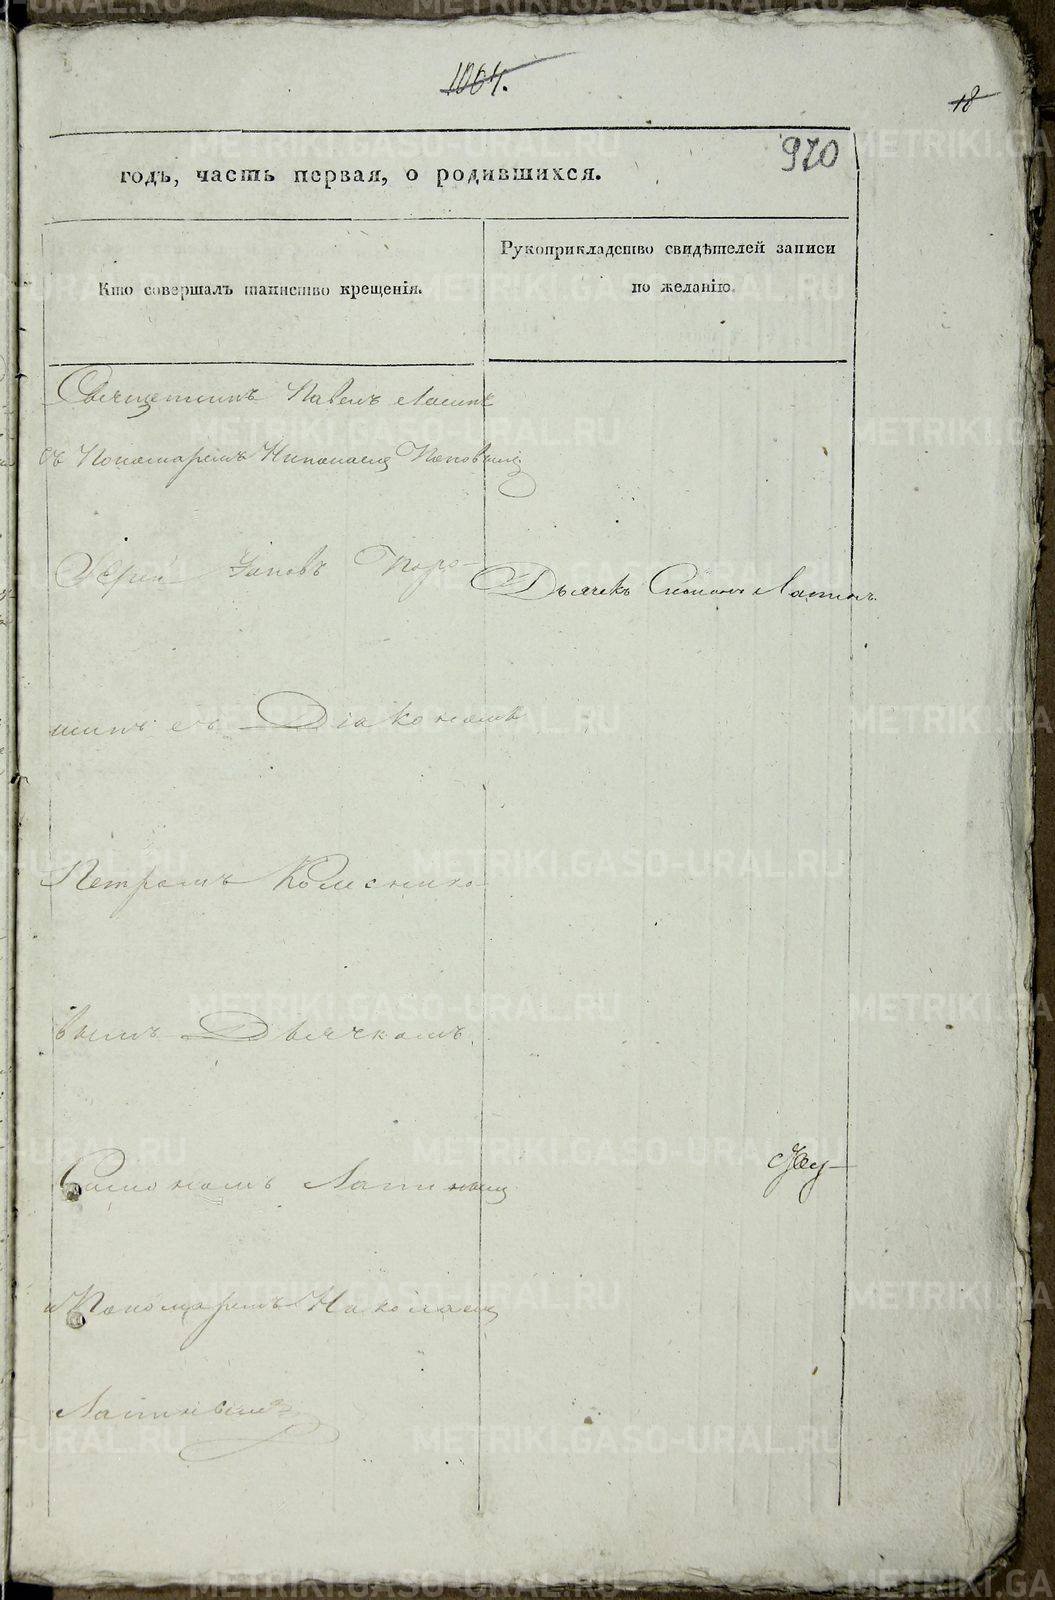 1064.
18
970
годъ, часть первая, о родившихся.
Кто совершалъ таинство крещенія.
Рукоприкладство свидѣтелей записи
по желанію.
Священникъ Павелъ
съ Пономаремъ Николаемъ Поповымъ
Іерей Іаковъ Поро-
Дьячекъ Симонъ Лапинъ
шинъ съ Діакономъ
Петромъ Колеснико-
вымъ Дьячкомъ
Симономъ Лапинымъ
и Пономаремъ Николаемъ
METRIKI.GASO-URAL.RU